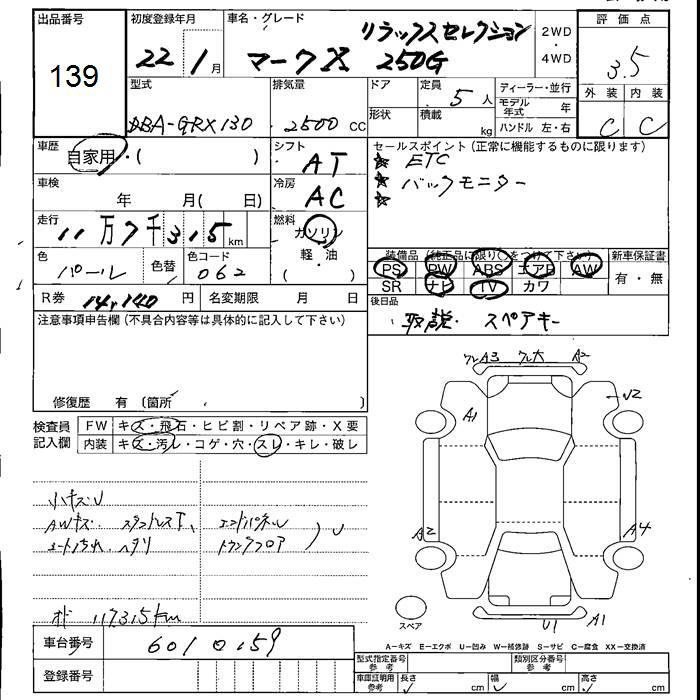 出品番号 初度登録年月 車名・グレード リラックスセレクション 2WD 評価点
139 22 / 1月 マークX 250G ・4WD 3.5
型式 排気量 ドア 定員 ディーラー・並行 外装 内装
DBA-GRX130 2500 cc 5人 モデル年式 年 C C
形状 積載 kg ハンドル 左・右
車歴 自家用・( ) シフト AT セールスポイント(正常に機能するものに限ります)
★ ETC
車検 年 月(日) 冷房 AC ★ バックモニター
★
走行 11万7千315km 燃料 ガソリン
軽・油
( )
装備品(純正品に限り○をつけて下さい) 新車保証書
色 パール 色替 色コード 062 PS PW ABS エアB AW 有・無
SR ナビ TV カワ
R券 14,140円 名変期限 月 日 後日品
取説. スペアキー
注意事項申告欄(不具合内容等は具体的に記入して下さい)
修復歴 有(箇所 )
検査員記入欄 FW キズ・飛石・ヒビ割・リペア跡・X要
内装 キズ・汚レ・コゲ・穴・スレ・キレ・破レ
A3 A2
U2
A1
A2 A4
U1 A1
スペア
小キズU
AWキズ.
エンドパネル
トランクフロア ) U
オド 117315km
A−キズ E−エクボ U−凹み W−補修跡 S−サビ C−腐食 XX−交換済
車台番号 6010159
型式指定番号 参考 類別区分番号 参考
登録番号 車庫証明用 参考 長さ cm 幅 cm 高さ cm